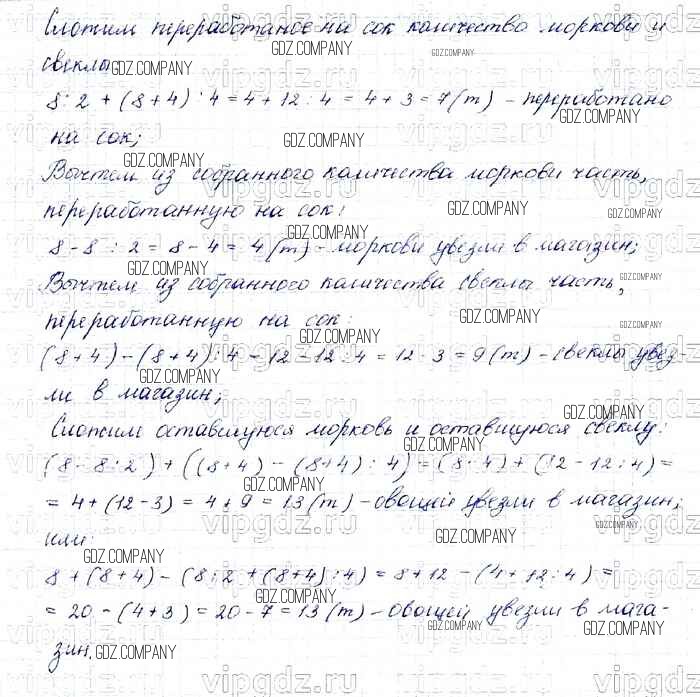 Сложим переработаное на сок количество моркови и
свеклы
8:2+(8+4):4=4+12:4=4+3=7(т) - переработано
на сок;
Вычтем из собранного количества моркови часть,
переработанную на сок:
8-8:2=8-4=4(т) - моркови увезли в магазин;
Вычтем из собранного количества свеклы часть,
переработанную на сок:
(8+4)-(8+4):4-12-12:4=12-3=9(т) - свеклы увез-
ли в магазин;
Сложим оставшуюся морковь и оставшуюся свеклу:
(8-8:2)+((8+4)-(8+4):4)=(8-4)+(12-12:4)=
=4+(12-3)=4+9=13(т) - овощей увезли в магазин;
или
8+(8+4)-(8:2+(8+4):4)=8+12-(4+12:4)=
=20-(4+3)=20-7=13(т) - овощей увезли в мага-
зин.
GDZ.COMPANY
vipgdz.ru